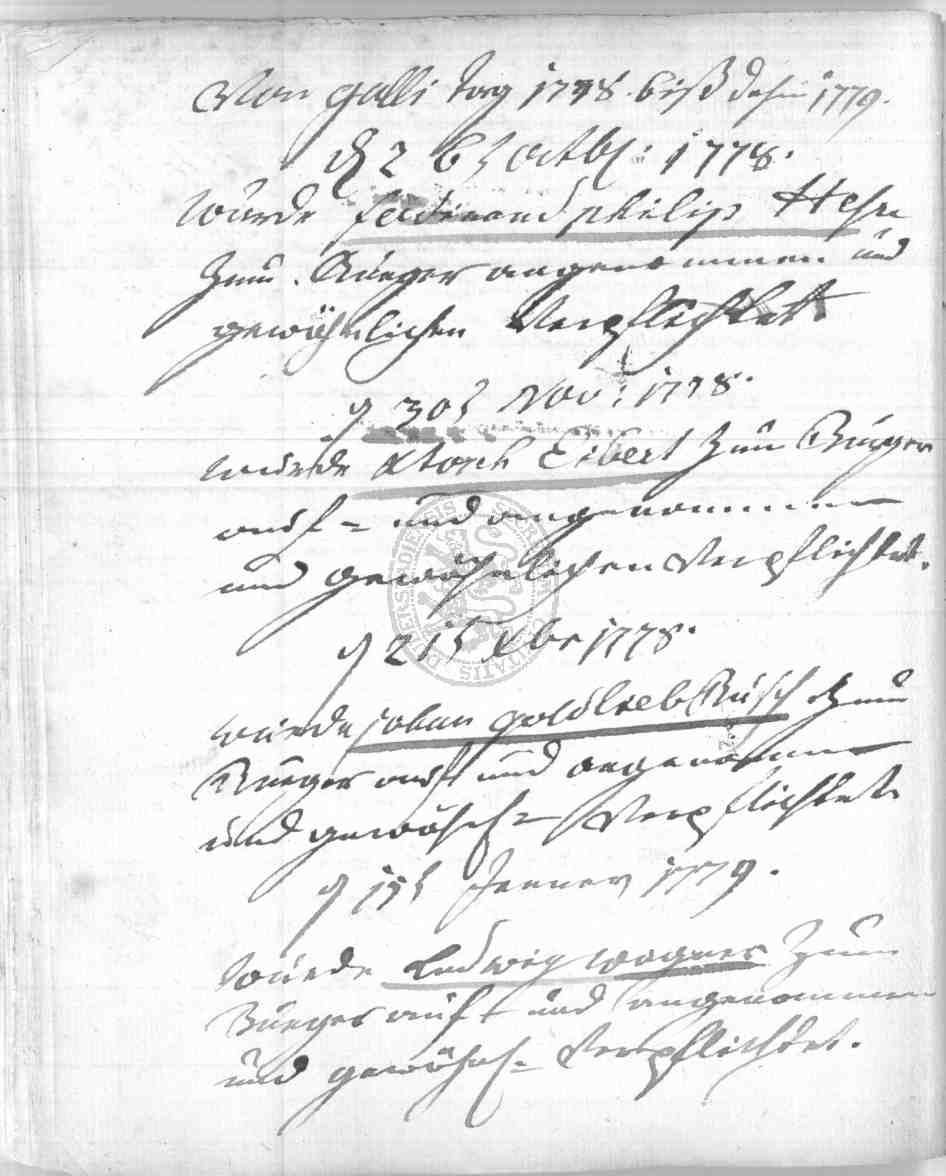 Von Galli tag 1778. biß dahin 1779.
d 26t octbr: 1778.
wurde Ferdinand philip Hehn
zum Burger angenommen und
gewöhnlichen Verpflichtet.
d 30t Nov: 1778.
wurde Eibert zum Burger
auf- und angenommen
und gewöhnlichen Verpflichtet.
d 21t xbr 1778.
wurde Johan Godlieb Busch zum
Burger auf und angenomme
und gewöhnl- Verpflichtet.
d 15t Jenner 1779.
wurde Ludwig wagner zum
Burger auf- und angenommen
und gewöhnl- Verpflichtet.